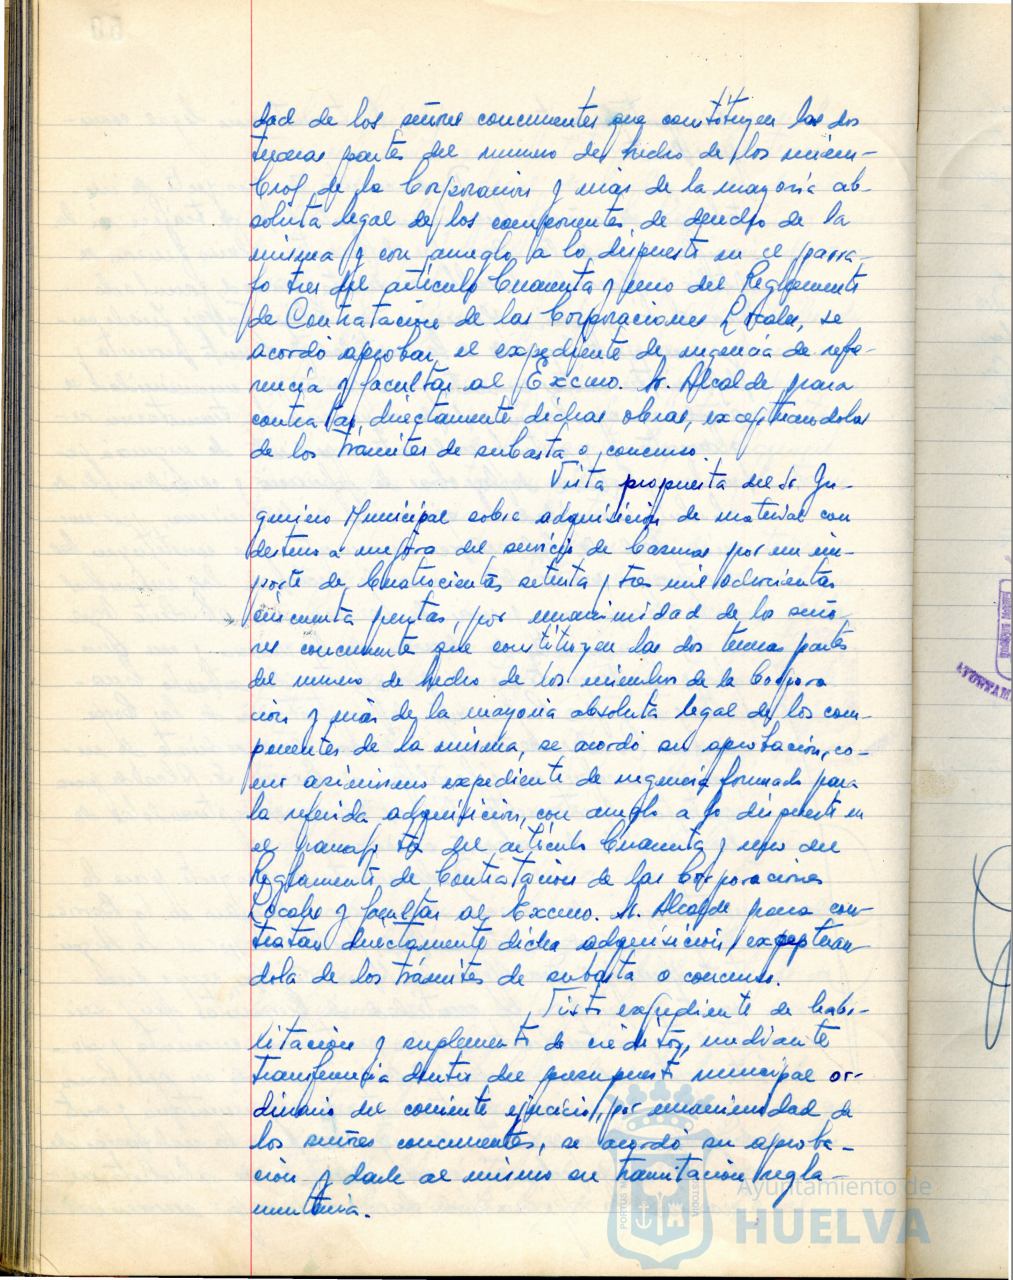 dad de los señores concurrentes que constituyen las dos
terceras partes del numero de hecho de los miem-
bros de la Corporacion y más de la mayoria ab-
soluta legal de los componentes de derecho de la
misma y con arreglo a lo dispuesto en el parra-
fo tres del artículo Cuarenta y uno del Reglamento
de Contratación de las Corporaciones Locales, se
acordó aprobar el expediente de urgencia de refe-
rencia y facultar al Excmo. Sr. Alcalde para
contratar directamente dichas obras, exceptuandolas
de los trámites de subasta o concurso.
Vista propuesta del Sr. In-
geniero Municipal sobre adquisición de material con
destino a mejora del servicio de par un im-
porte de Cuatrocientas setenta y tres mil ochocientas
cincuenta pesetas, por unanimidad de los seño-
res concurrentes que constituyen las dos terceras partes
del numero de hecho de los miembros de la Corpora
ción y más de la mayoria absoluta legal de los com-
ponentes de la misma, se acordó su aprobación, co-
mo asimismo expediente de urgencia formado para
la referida adquisición, con arreglo a lo dispuesto en
el parrafo tres del artículo Cuarenta y uno del
Reglamento de Contratación de las Corporaciones
Locales y facultar al Excmo. Sr. Alcalde para con-
tratar directamente dicha adquisición exceptuan-
dola de los trámites de subasta o concurso.
Visto expediente de habi-
litación y suplemento de créditos, mediante
transferencia dentro del presupuesto municipal or-
dinario del corriente ejercicio, por unanimidad de
los señores concurrentes, se acordó su aproba-
ción y darle al mismo su tramitación regla-
mentaria.
Ayuntamiento de
HUELVA